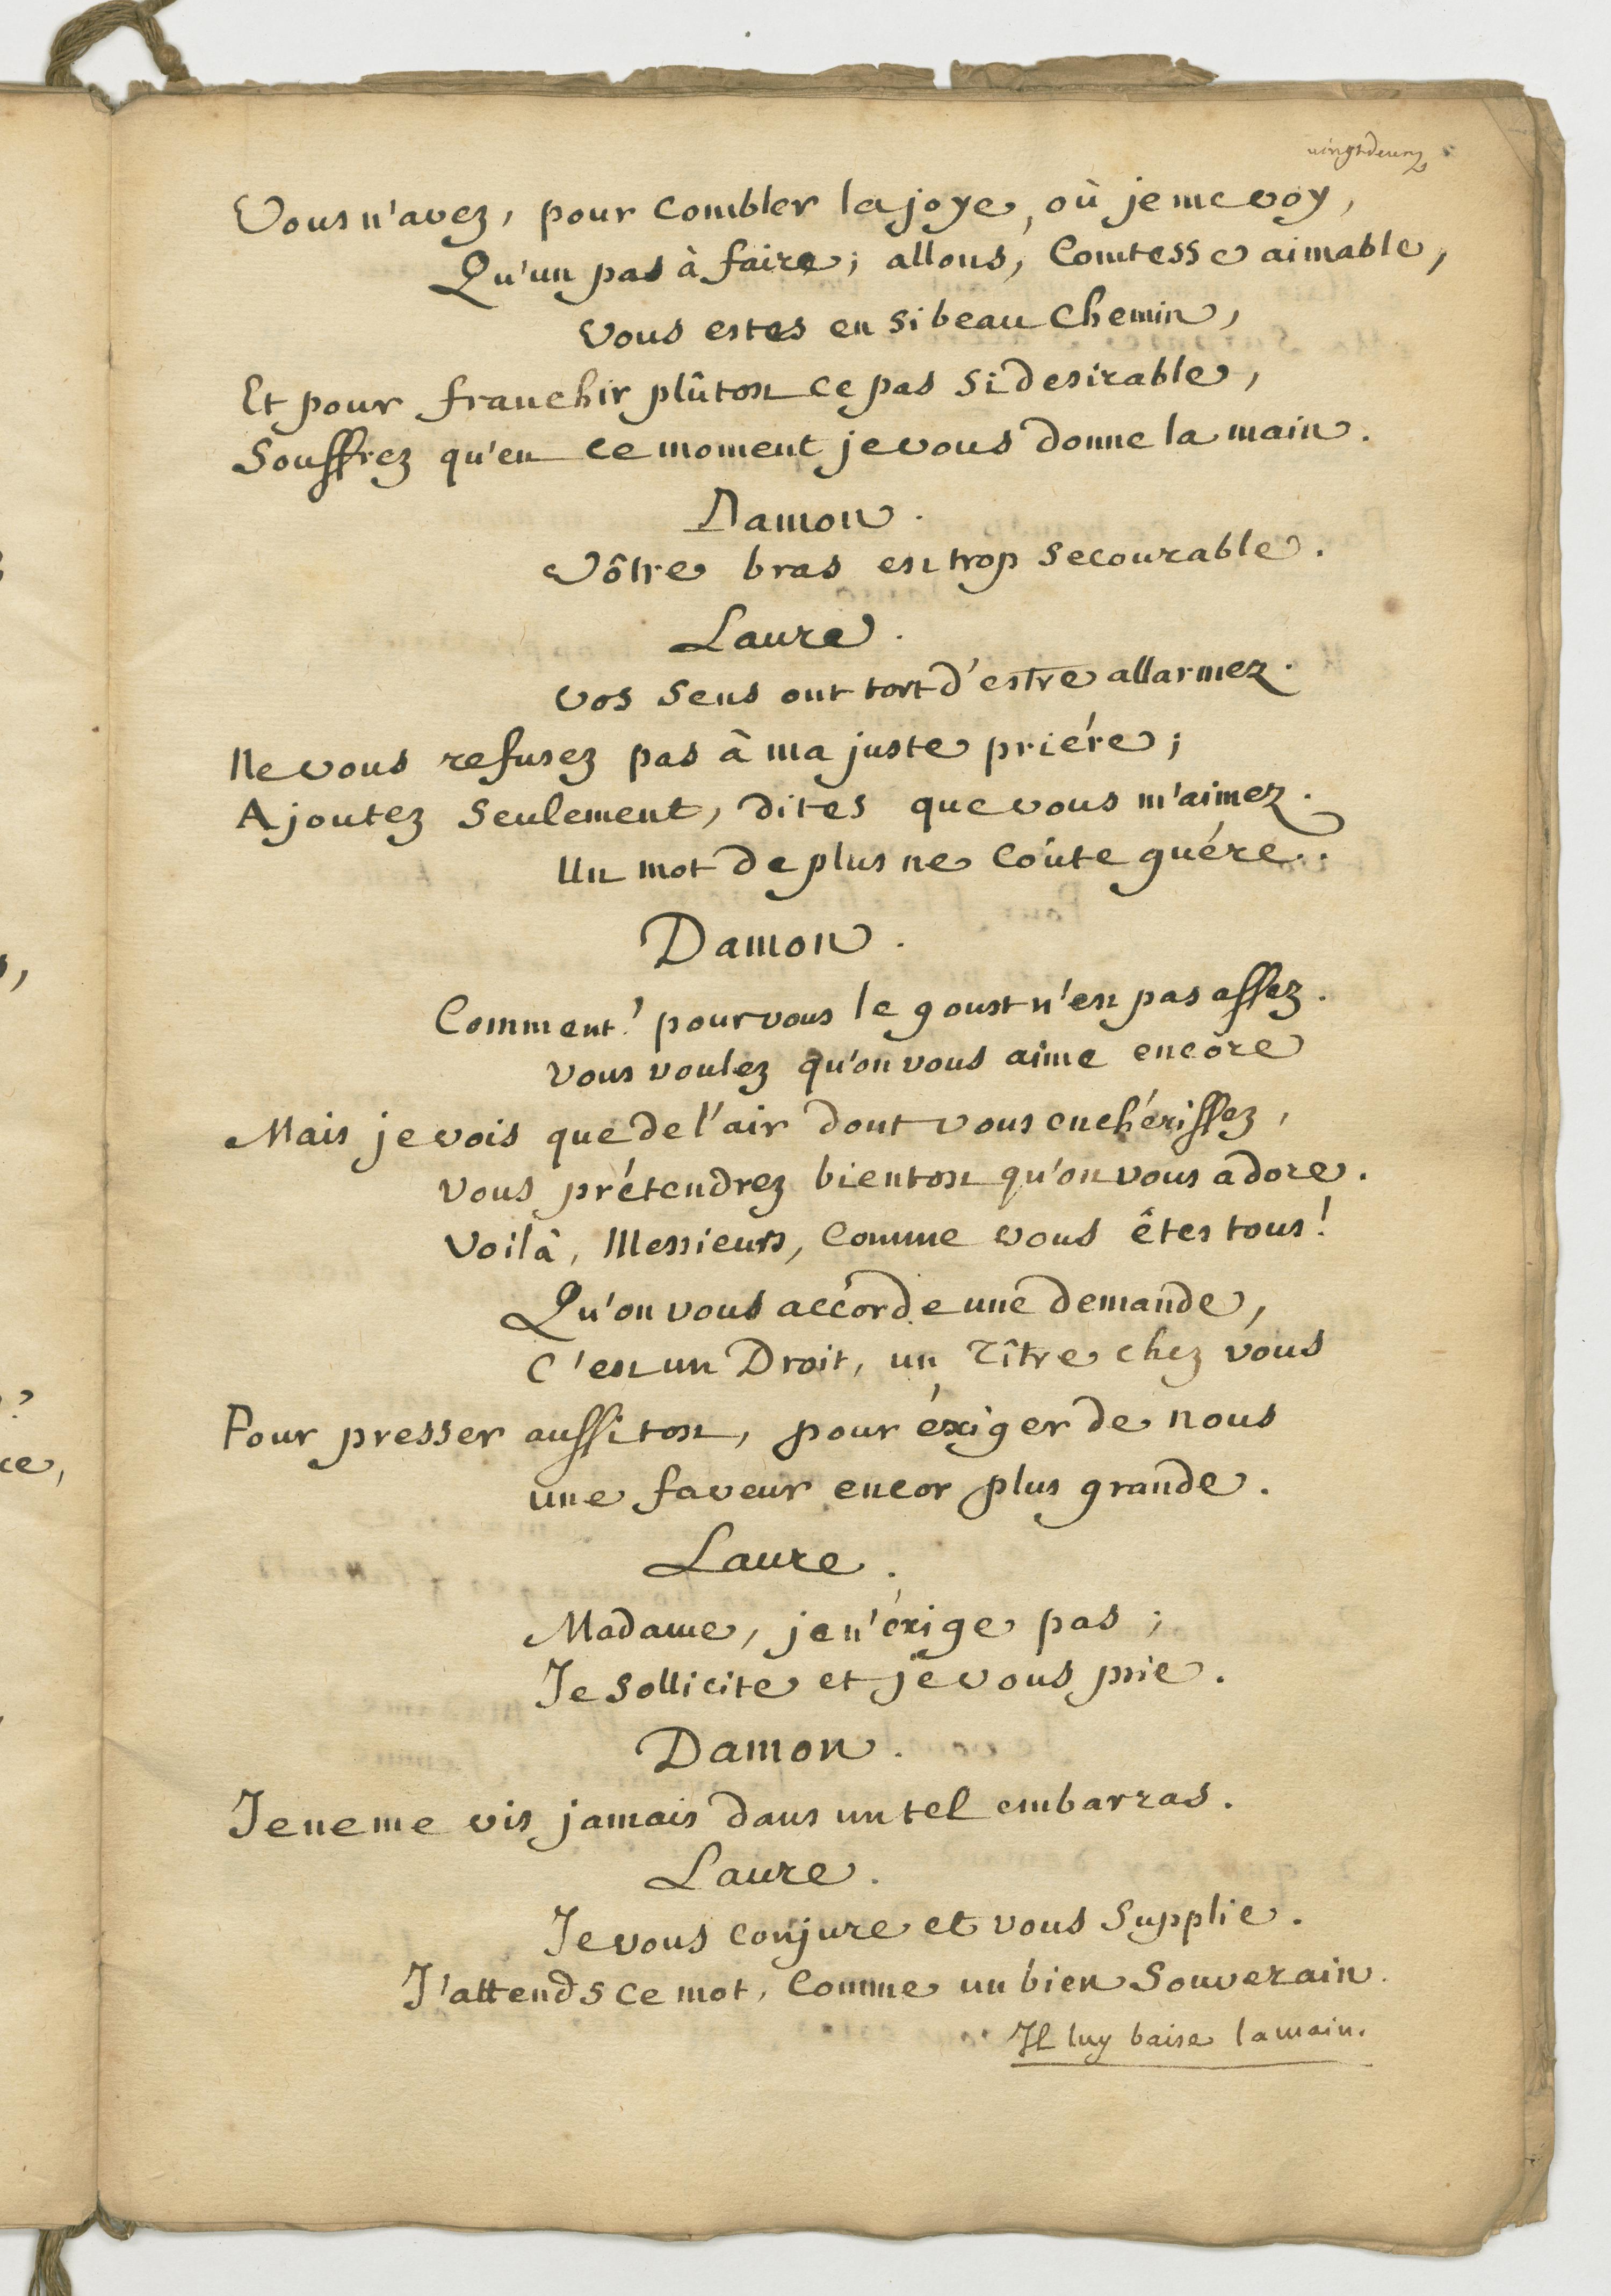 vingt deux
Vous n'avez, pour combler la joye, où je me voy,
Qu'un pas à faire; allons, Comtesse aimable,
Vous estes en si beau chemin,
Et pour franchir plûtost ce pas si desirable,
Souffrez qu'en ce moment je vous donne la main.
Damon.
Vôtre bras est trop secourable.
Laure.
Vos sens ont tort d'estre allarmez.
Ne vous refusez pas à ma juste priére;
Ajoutez seulement, dites que vous m'aimez.
Un mot de plus ne coûte guére.
Damon.
Comment! pour vous le goust n'est pas assez.
Vous voulez qu'on vous aime encore
Mais je vois que de l'air dont vous enchérissez,
Vous prétendrez bientost qu'on vous adore.
Voilà, Messieurs, comme vous êtes tous!
Qu'on vous accorde une demande,
C'est un Droit, un Tître chez vous
Pour presser aussitost, pour éxiger de nous
une faveur encor plus grande.
Laure.
Madame, je n'éxige pas;
Je sollicite et je vous prie.
Damon.
Je ne me vis jamais dans un tel embarras.
Laure.
Je vous conjure et vous supplie.
J'attends ce mot, comme un bien souverain.
Il luy baise la main.
s,
?
ce,